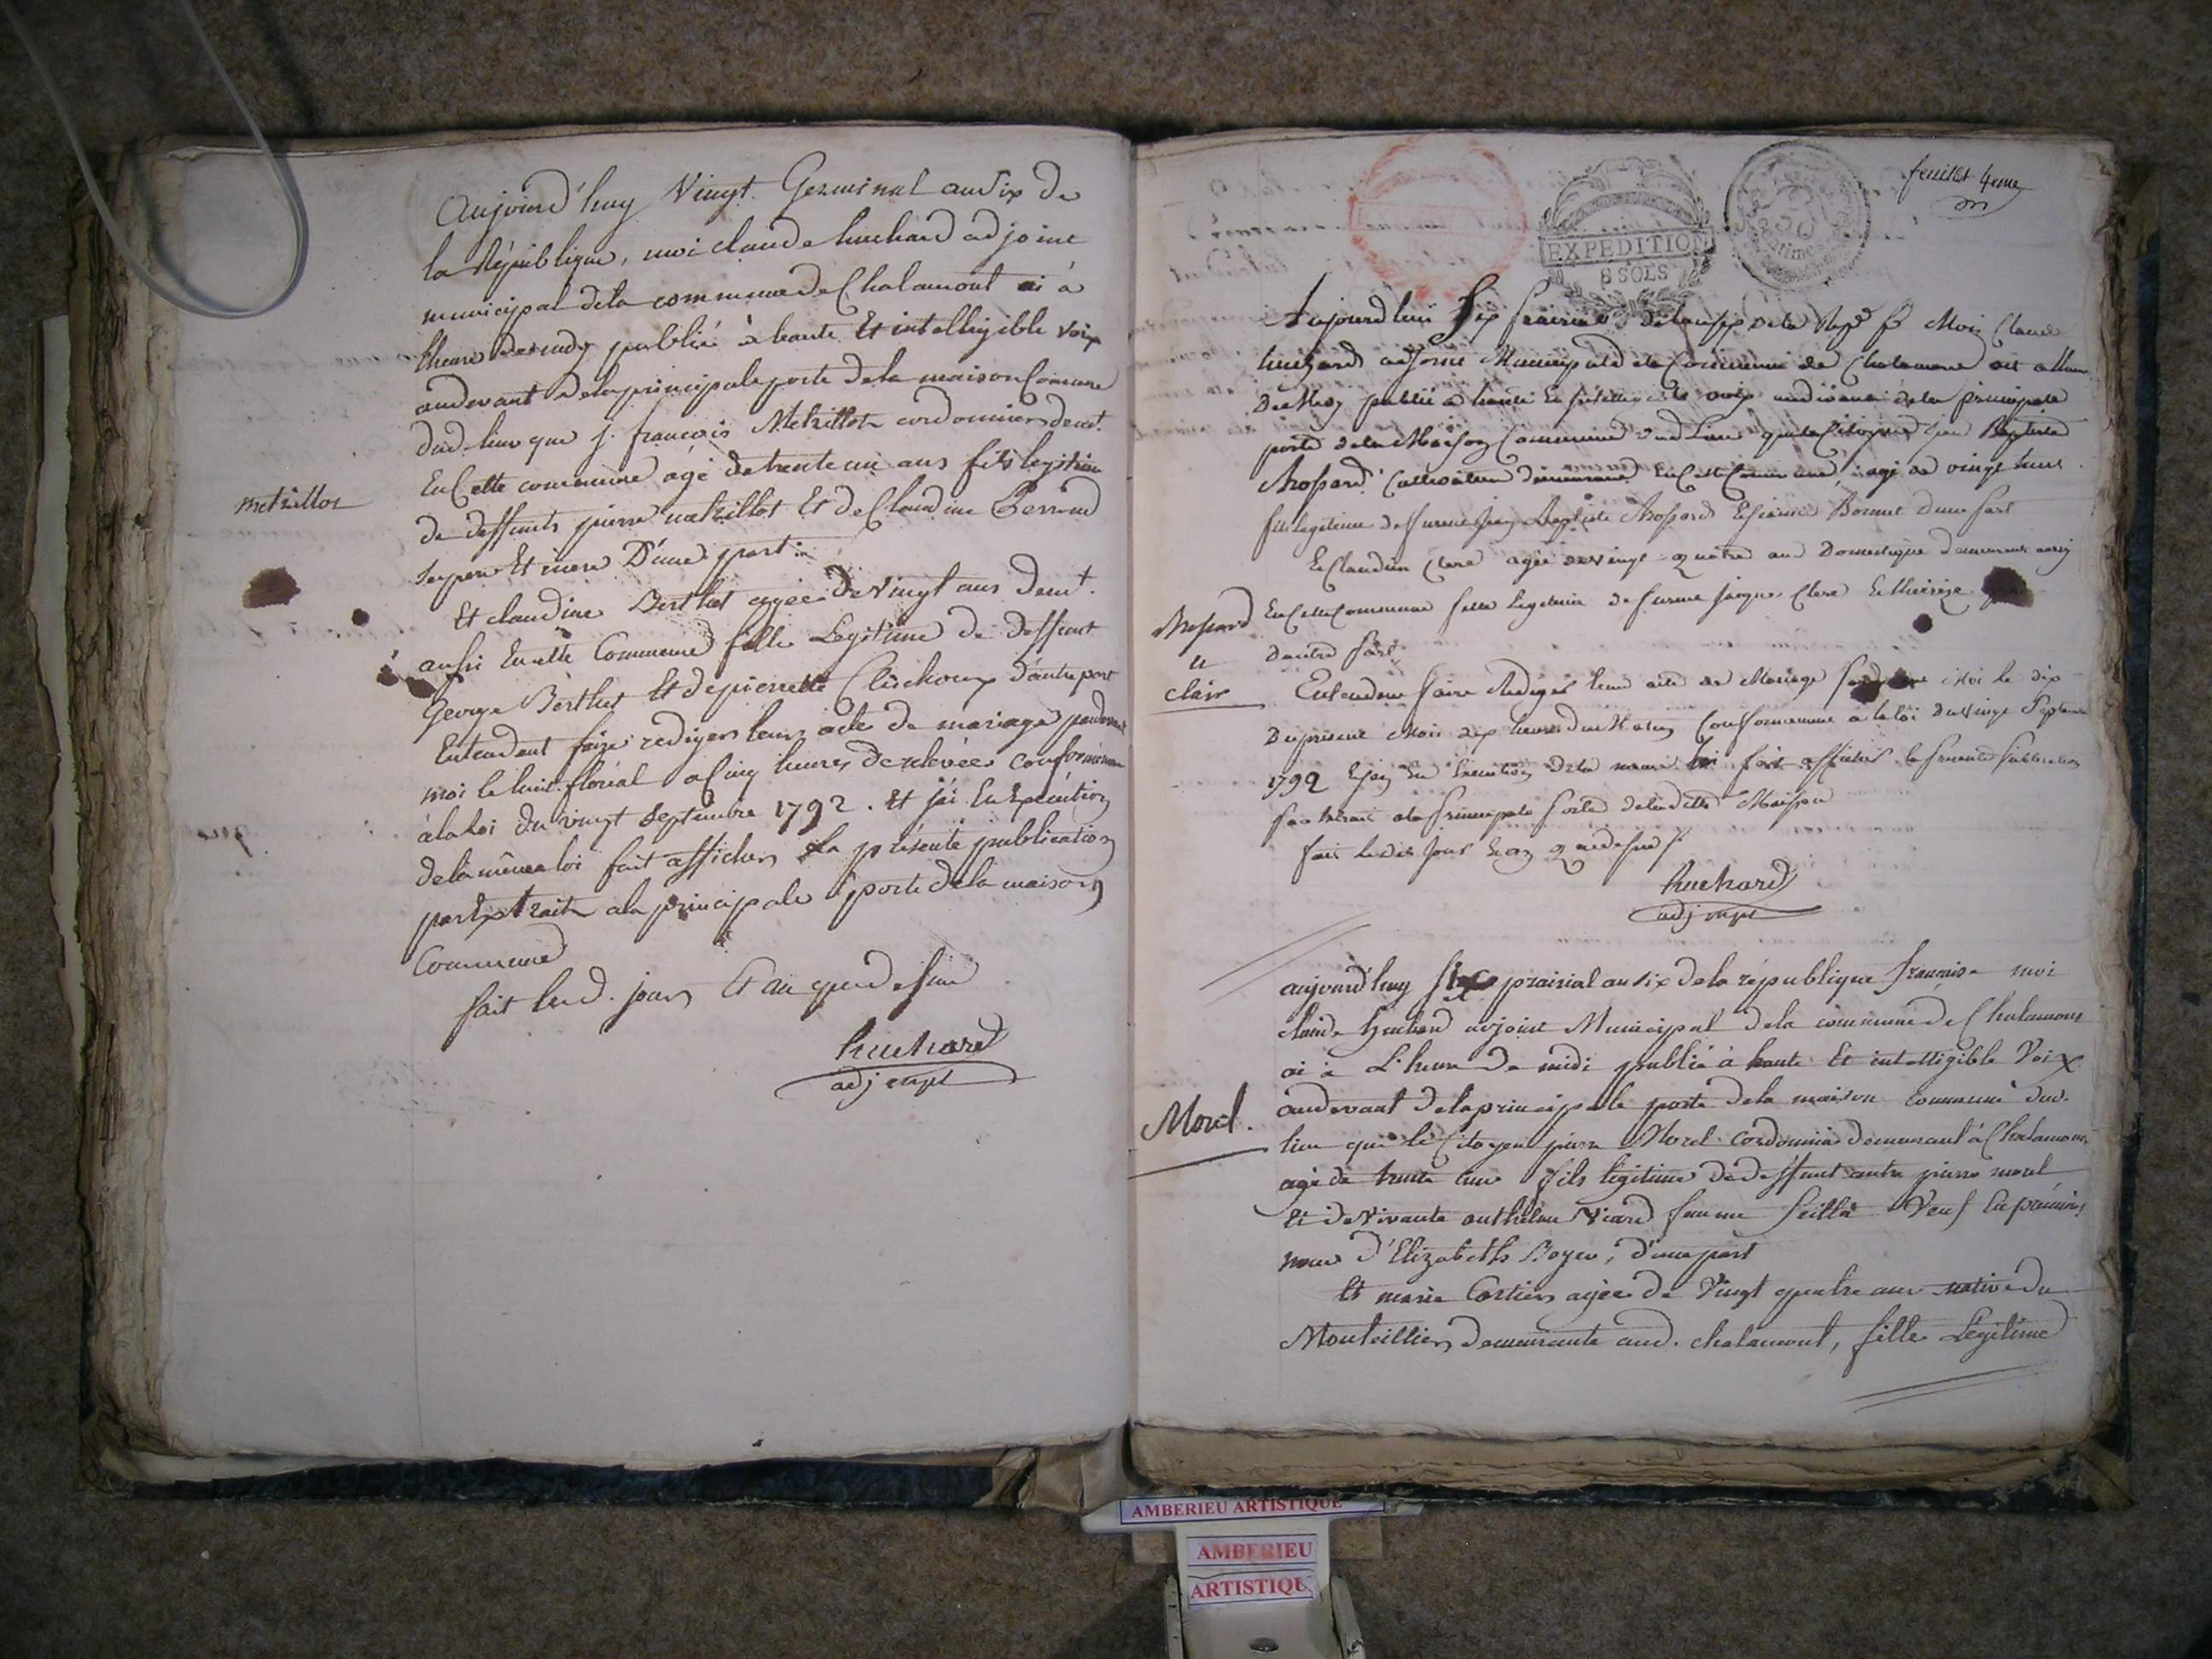 Aujourd'huy Vingt Germinal an Six de
la République, moi claude huchard adjoint
municipal dela commune de Chalamont ai à
lheure de midy publié à haute Et intelligible voix
audevant delaprincipale porte dela maison Comune
dud. lieu que j. francois Metrillot cordonnier demt.
En Cette commune agé de trente un ans fils legitime
de deffunts pierre metrillot Et de Claudine Perroud
ses pere Et mere D'une part
Et claudine Berthet agée de Vingt ans demt.
aussi En cette Commune fille Legitime de deffunt
George Berthet Et depierrette d'autre part
Entendent faire rediger leur acte de mariage pardevant
moi le huit floréal a Cinq heures de relevée conformément
àla Loi du vingt Septembre 1792. Et jai En Execution
delamême loi fait afficher La présente publication
par Extrait ala principale porte dela maison
Commune
fait lesd. jour Et an que dessus
huchard
adj mpl
metrillot
feuillet 4eme
EXPEDITION
8 SOLS
Aujourdhui Six prairial delan six dela Rep. f. Moi Claude
huchard adjoint Municipal de la Commune de Chalamont ait a lheure
De Midy publié a haute voix audevant dela principale
porte dela Maison Commune dud Lieu que le Citoyen Jean Baptiste
Chossard Cultivateur demeurant En Cette Commune, agé de vingt huit
fils legitime de Jean Baptiste Chossard Bonnet d'une part
Et Claudine Clere agée de vingt quatre ans Domestique demeurant aussi
En Cette Commune fille legitime de Jacque Clere Et
dautre part
Chossard
et
clair
Entendent faire Rediger leur acte de Mariage Moi le dix
Du présent Mois dix heures du Matin Conformement a la loi Du vingt Septembre
1792 Et jay En Execution dela meme loi fait afficher la presente publication
par Extrait ala principale porte deladitte Maison
fait lesdits jour Et an que dessus
huchard
adj mpl
aujourd'huy six prairial an six dela république francaise moi
claude huchard adjoint Municipal dela commune de Chalamont
ai à L'heure De midi publié à haute Et intelligible Voix
audevant delaprincipale porte dela maison commune dud.
lieu que le Citoyen pierre Morel cordonnier demeurant à Chalamont
agé de trente ans fils légitime de deffunt autre pierre morel
Et de Vivante anthelme Viard Veuf En premiere
noces d'Elizabeth Boyer, d'une part
Et marie Cortier agée de Vingt quatre ans native du
Montellier demeurante aud. chalamont, fille Légitime
Morel.
AMBERIEU ARTISTIQUE
AMBERIEU
ARTISTIQU